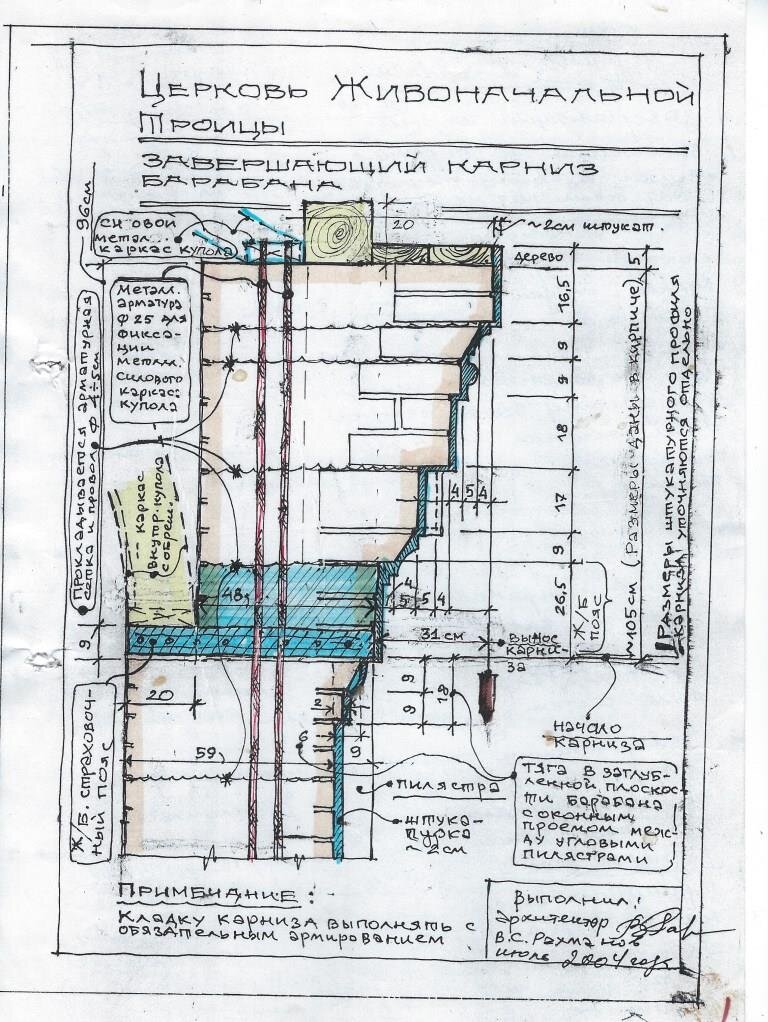 Церковь Живоначальной
Троицы
завершающий карниз
барабана
96см
силовой
метал.
каркас купола
20
~2см штукат.
дерево
5
металл.
арматура
φ 25 для
фикса-
ции
металл.
силового
каркас:
купола
Прокладывается арматурная
сетка и провол φ 4÷5см
каркас
внутр. купола
16,5
9
9
18
17
9
26,5
~105см (Размеры даны в кирпиче)
Размеры штукатурного профиля
карниза уточняются отдельно
4 5 4
4
5 5 4
48,
Ж/Б
пояс
9
31 см
вынос
карни-
за
20
2
9
9
18
начало
карниза
Ж/Б. страховоч-
ный пояс
59,
6
9
пилястра
штука-
турка
~2см
тяга в заглуб-
ленной плоскос-
ти барабана
с оконным
проемом меж-
ду угловыми
пилястрами
Примечание:
кладку карниза выполнять с
обязательным армированием
выполнил:
архитектор
В.С. Рахманов
июль 2004 год